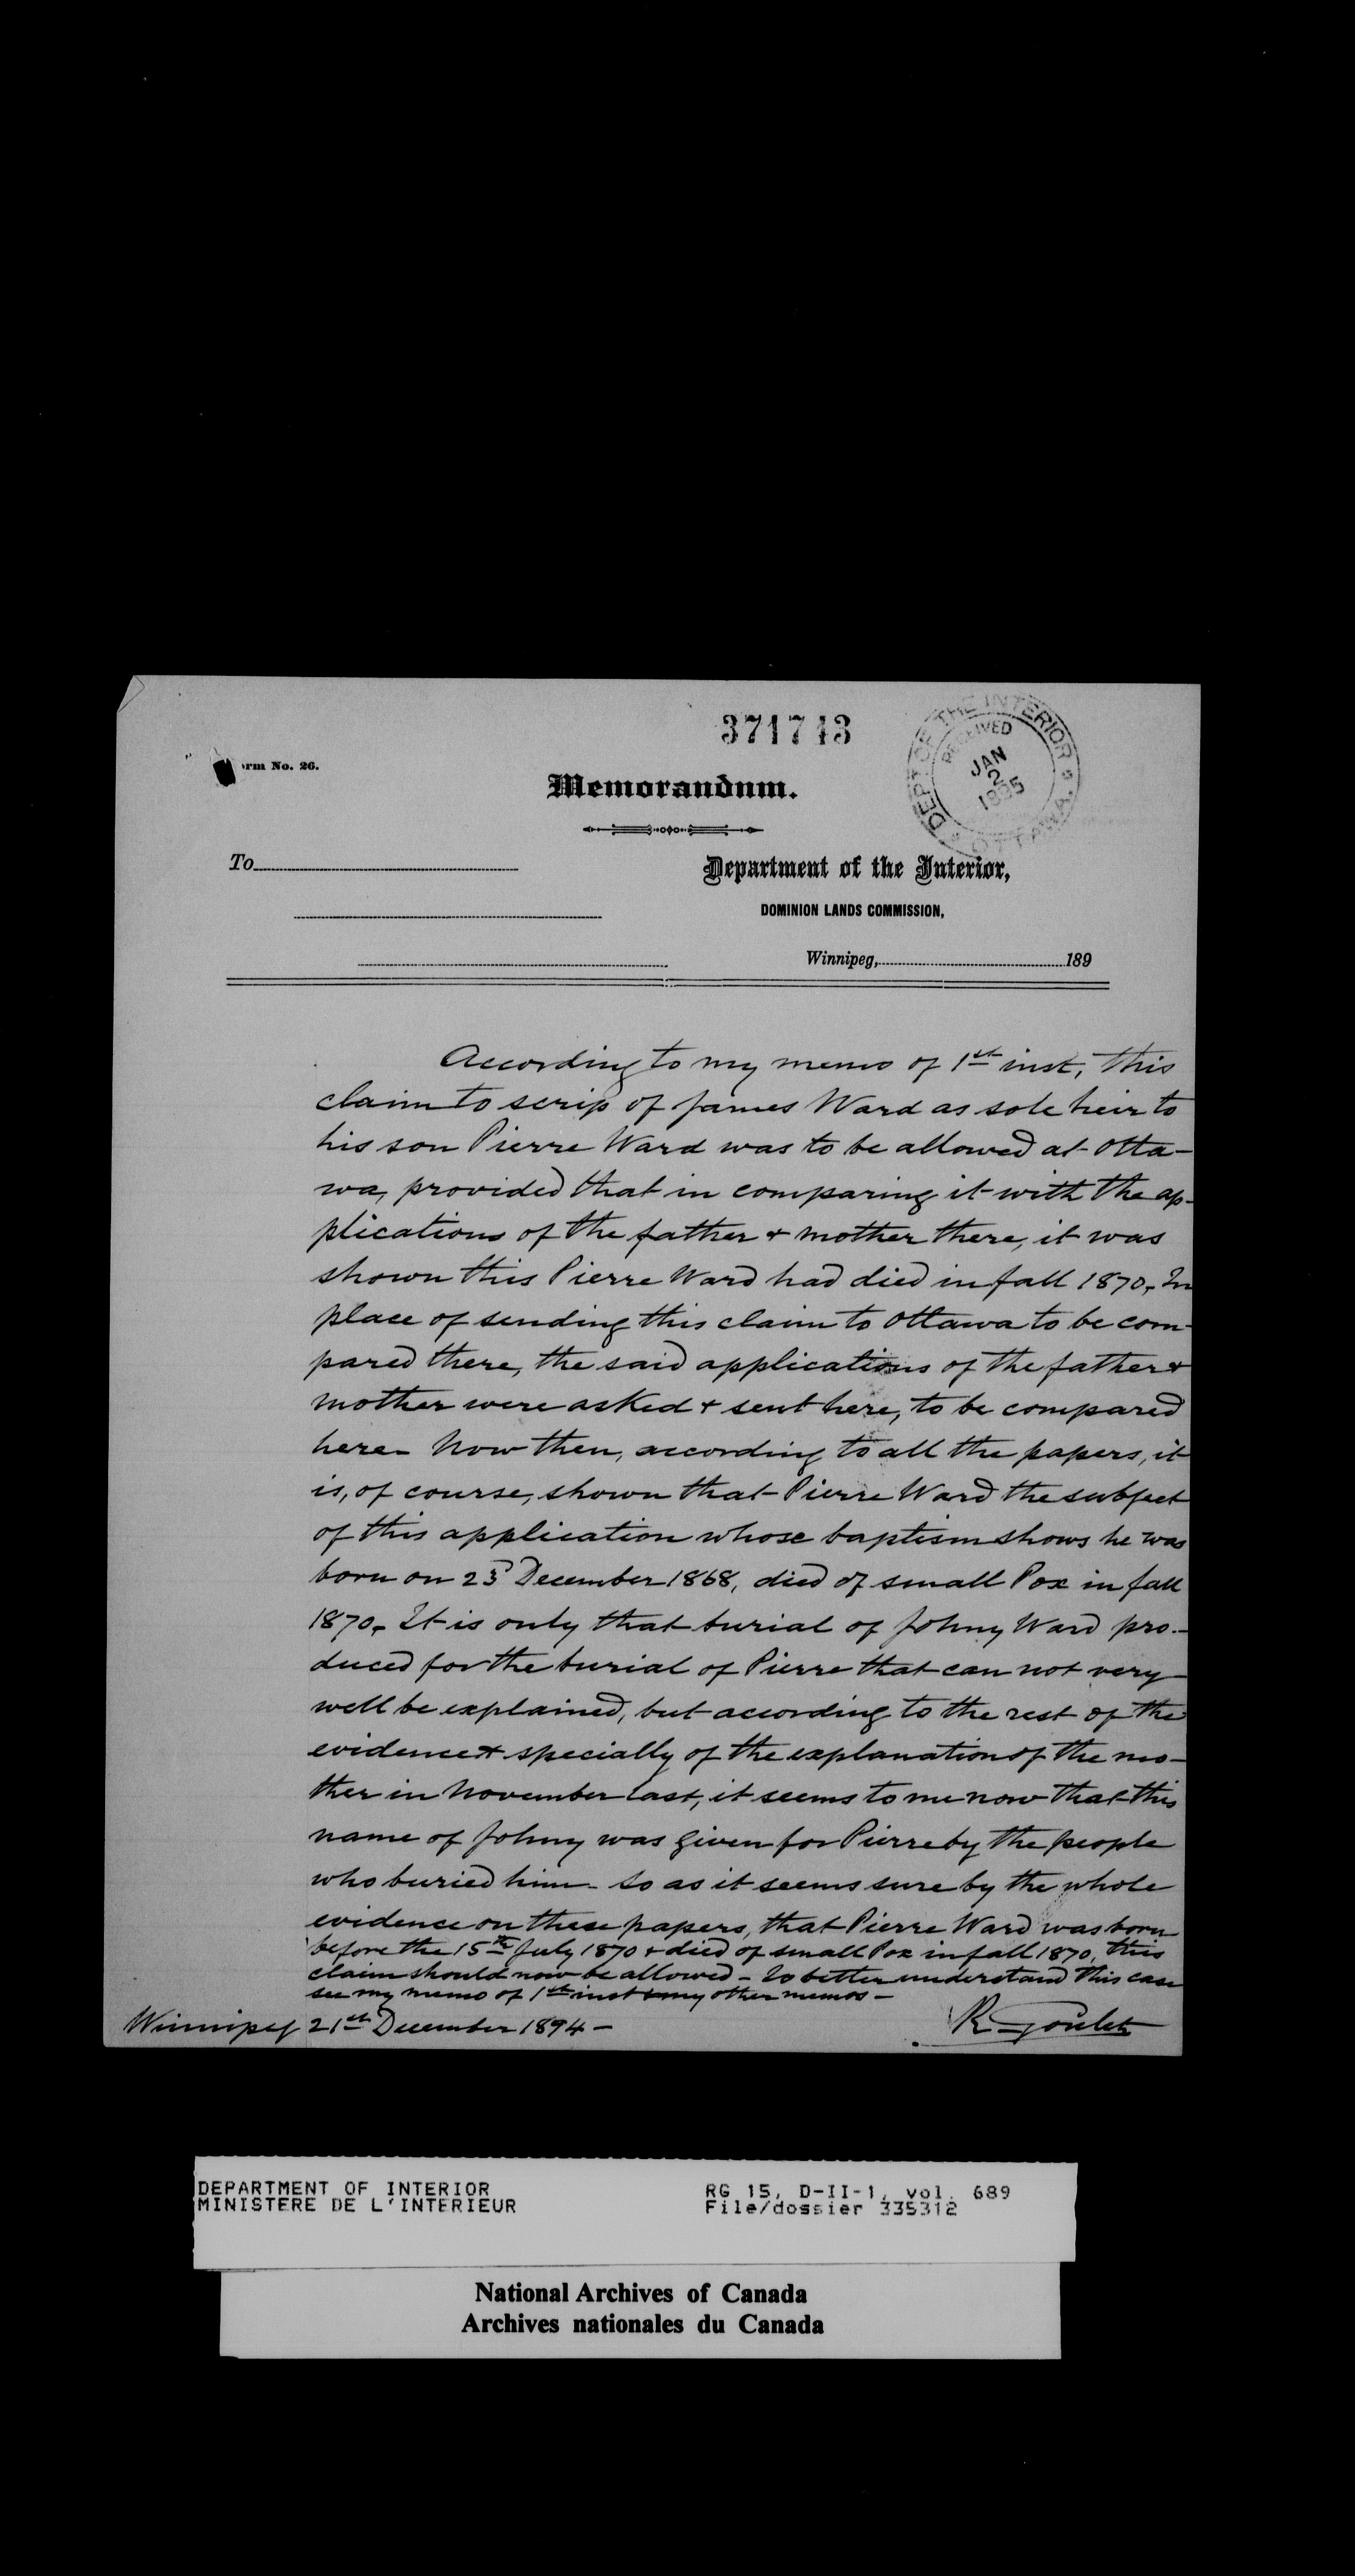 371743
DEPT. OF THE INTERIOR
RECEIVED
JAN
2
1895
OTTAWA.
rm No. 26.
Memorandum.
To
Department of the Interior,
DOMINION LANDS COMMISSION,
Winnipeg, 189
According to my memo of 1st inst, this
claim to scrip of James Ward as sole heir to
his son Pierre Ward was to be allowed at Otta-
wa, provided that in comparing it with the ap-
plications of the father & mother there, it was
shown this Pierre Ward had died in fall 1870. In
place of sending this claim to Ottawa to be com-
pared there, the said applications of the father &
mother were asked & sent here, to be compared
here - Now then, according to all the papers, it
is, of course, shown that Pierre Ward the subject
of this application whose baptism shows he was
born on 23d December 1868, died of small Pox in fall
1870. It is only that burial of Johny Ward pro-
duced for the burial of Pierre that can not very
well be explained, but according to the rest of the
evidence & specially of the explanation of the mo-
ther in November last, it seems to me now that this
name of Johny was given for Pierre by the people
who buried him - So as it seems sure by the whole
evidence on these papers, that Pierre Ward was born
before the 15th July 1870 & died of small Pox in fall 1870, this
claim should now be allowed - To better understand this case
see my memo of 1st inst & my other memos -
Winnipeg 21st December 1894 -
R Goulet
DEPARTMENT OF INTERIOR
MINISTERE DE L'INTERIEUR
RG 15, D-II-1, vol. 689
File/dossier 335312
National Archives of Canada
Archives nationales du Canada